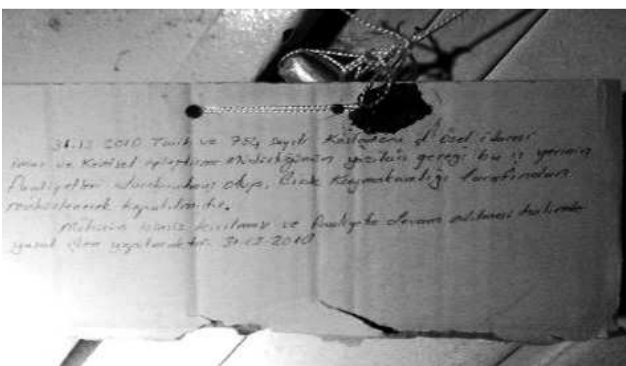 31.12.2010 Tarih ve 754 sayılı Kastamonu il özel idaresi
imar ve Kentsel iyileştirme Müdürlüğünün yazıları gereği bu iş yerinin
Faaliyetleri durdurulmuş olup, Kaymakamlığı tarafından
mühürlenerek kapatılmıştır.
Mührün izinsiz ve Faaliyete devam edilmesi halinde
yasal işlem yapılacaktır. 31.12.2010